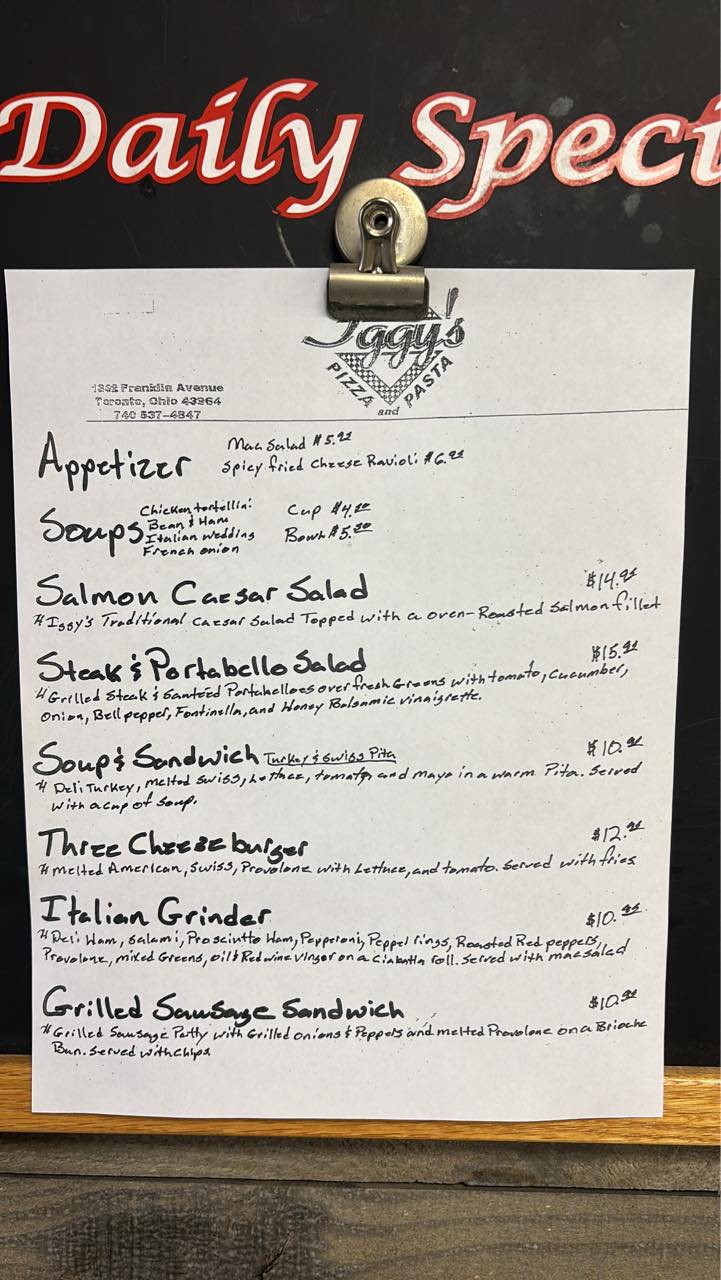 Daily Speci
Iggy's
PIZZA and PASTA
1332 Franklin Avenue
Toronto, Ohio 43964
740 537-4847
Appetizer
Mac Salad $5.95
Spicy fried Cheese Ravioli $6.95
Soups
Chicken tortellini
Bean & Ham
Italian Wedding
French onion
Cup $4.50
Bowl $5.50
Salmon Caesar Salad $14.95
Iggy's Traditional Caesar Salad Topped with a oven-Roasted Salmon fillet
Steak & Portabello Salad $15.95
Grilled Steak & Sauteéd Portabelloes over fresh Greens with tomato, Cucumber,
Onion, Bell pepper, Fontinella, and Honey Balsamic vinaigrette.
Soup & Sandwich Turkey & Swiss Pita $10.95
Deli Turkey, melted Swiss, Lettuce, tomato, and mayo in a warm Pita. Served
with a cup of soup.
Three Cheeseburger $12.95
melted American, Swiss, Provolone with Lettuce, and tomato. Served with fries
Italian Grinder $10.95
Deli Ham, Salami, Prosciutto Ham, Pepperoni, Pepper rings, Roasted Red peppers,
Provolone, mixed Greens, oil & Red wine Vinger on a Ciabatta roll. Served with mac salad
Grilled Sausage Sandwich $10.95
Grilled Sausage Patty with Grilled onions & Peppers and melted Provolone on a Brioche
Bun. Served with chips